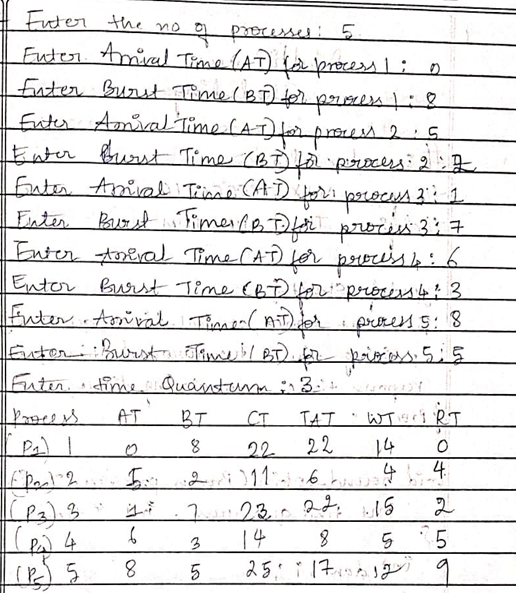 Enter the no of processes: 5
Enter Arrival Time (AT) for process 1 : 0
Enter Burst Time (BT) for process 1 : 8
Enter Arrival Time (AT) for process 2 : 5
Enter Burst Time (BT) for process: 2 : 2
Enter Arrival Time (AT) for process 3 : 1
Enter Burst Time (BT) for process 3 : 7
Enter Arrival Time (AT) for process 4 : 6
Enter Burst Time (BT) for process 4 : 3
Enter Arrival Time (AT) for process 5 : 8
Enter Burst Time (BT) for process 5 : 5
Enter time Quantum : 3
Process AT BT CT TAT WT RT
(P1) 1 0 8 22 22 14 0
(P2) 2 5 2 11 6 4 4
(P3) 3 1 7 23 22 15 2
(P4) 4 6 3 14 8 5 5
(P5) 5 8 5 25 17 12 9